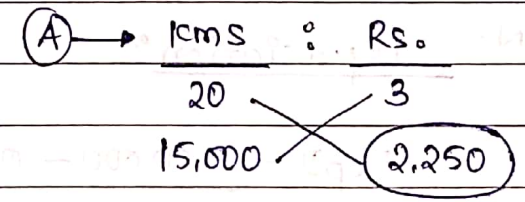 A → Kms : Rs.
20 3
15,000 2,250